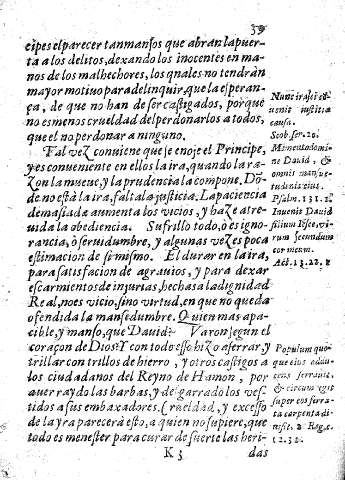 39
cipes el parecer tan mansos que abran la puer-
ta a los delitos, dexando los inocentes en ma-
nos de los malhechores, los quales no tendràn
mayor motiuo para delinquir, que la esperan-
ça, de que no han de ser castigados, porque
no es menos crueldad el perdonarlos a todos,
que el no perdonar a ninguno.
Tal vez conuiene que se enoje el Principe,
y es conueniente en ellos la ira, quando la ra-
zon la mueue, y la prudencia la compone. Dõ-
de no està la ira, falta la justicia. La paciencia
demasiada aumenta los vicios, y haze atre-
uida la obediencia. Sufrillo todo, ò es igno-
rancia, ò seruidumbre, y algunas vezes poca
estimacion de si mismo. El durar en la ira,
para satisfacion de agrauios, y para dexar
escarmientos de injurias, hechas a la dignidad
Real, no es vicio, sino virtud, en que no queda
ofendida la mansedumbre. Quien mas apa-
cible, y manso, que Dauid? Varon segun el
coraçon de Dios? Y con todo esso hizo aserrar, y
trillar con trillos de hierro, y otros castigos a
los ciudadanos del Reyno de Hamon, por
auer raydo las barbas, y desgarrado los ves-
tidos a sus embaxadores. Crueldad, y excesso
de la yra parecerà esto, a quien no supiere, que
todo es menester para curar de suerte las heri-
K 3 das
Nunc irasci cõ-
uenit iustitiæ
causa.
Scob. ser. 20.
Memento domi-
ne Dauid, &
omnis mansue-
tudinis eius.
Psalm. 131. 1.
Inueni Dauid
filium Iesse, vi-
rum secundum
cor meum.
Act. 13. 22.
Populum quo-
que eius addu-
cens serrauit,
& circum egit
super eos ferra-
ta carpenta di-
uisit. 2. Reg. c.
12. 31.